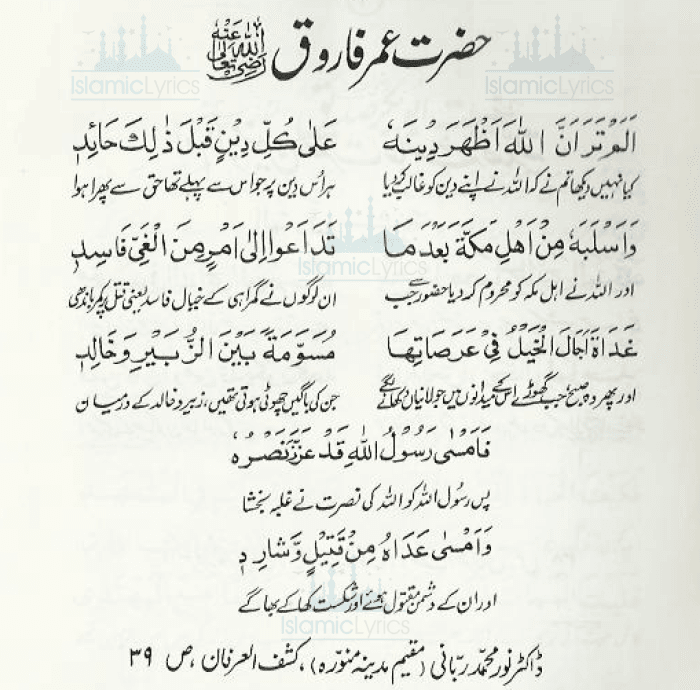 حضرت عمر فاروق رضی اللہ تعالیٰ عنہ
اَلَمْ تَرَ اَنَّ اللّٰهَ اَظْهَرَ دِيْنَهٗ عَلٰی كُلِّ دِيْنٍ قَبْلَ ذٰلِكَ حَائِدٖ
کیا نہیں دیکھا تم نے کہ اللہ نے اپنے دین کو غالب کر دیا ہر اُس دین پر جو اس سے پہلے تھا حق سے پھرا ہوا
وَاَسْلَبَهٗ مِنْ اَهْلِ مَكَّةَ بَعْدَ مَا تَدَاعَوْا اِلٰی اَمْرٍ مِنَ الْغَيِّ فَاسِدٖ
اور اللہ نے اہل مکہ کو محروم کر دیا حضور سے جب ان لوگوں نے گمراہی کے خیال فاسد یعنی قتل پر کمر باندھی
غَدَاةَ اَجَالَ الْخَيْلُ فِیْ عَرَصَاتِهَا مُسَوَّمَةً بَيْنَ الزُّبَيْرِ وَخَالِدٖ
اور پھر وہ صبح جب گھوڑے اس کے میدانوں میں جولانیاں دکھانے لگے جن کی باگیں چھوٹی ہوتی تھیں، زبیر و خالد کے درمیان
فَاَمْسٰی رَسُوْلُ اللّٰهِ قَدْ عَزَّ نَصْرُهٗ
پس رسول اللہ کو اللہ کی نصرت نے غلبہ بخشا
وَاَمْسٰی عَدَاهُ مِنْ قَتِيْلٍ وَّشَارِدٖ
اور ان کے دشمن مقتول ہوئے اور شکست کھا کے بھاگے
ڈاکٹر نور محمد ربانی (مقیم مدینہ منورہ)، کشف العرفان، ص ۳۹
IslamicLyrics
IslamicLyrics
IslamicLyrics
IslamicLyrics